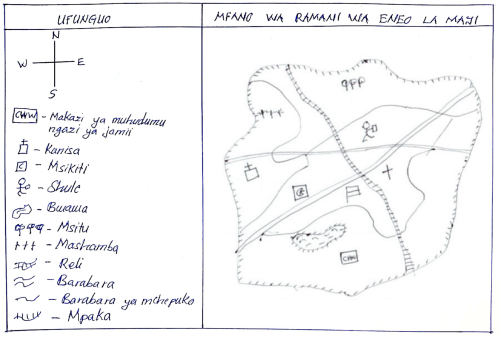 UFUNGUO
N
W E
S
CHW - Makazi ya muhudumu
ngazi ya jamii
- Kanisa
- Msikiti
- Shule
- Bwawa
- Msitu
- Mashamba
- Reli
- Barabara
- Barabara ya mchepuko
- Mpaka
MFANO WA RAMANI WA ENEO LA MAJI
CHW